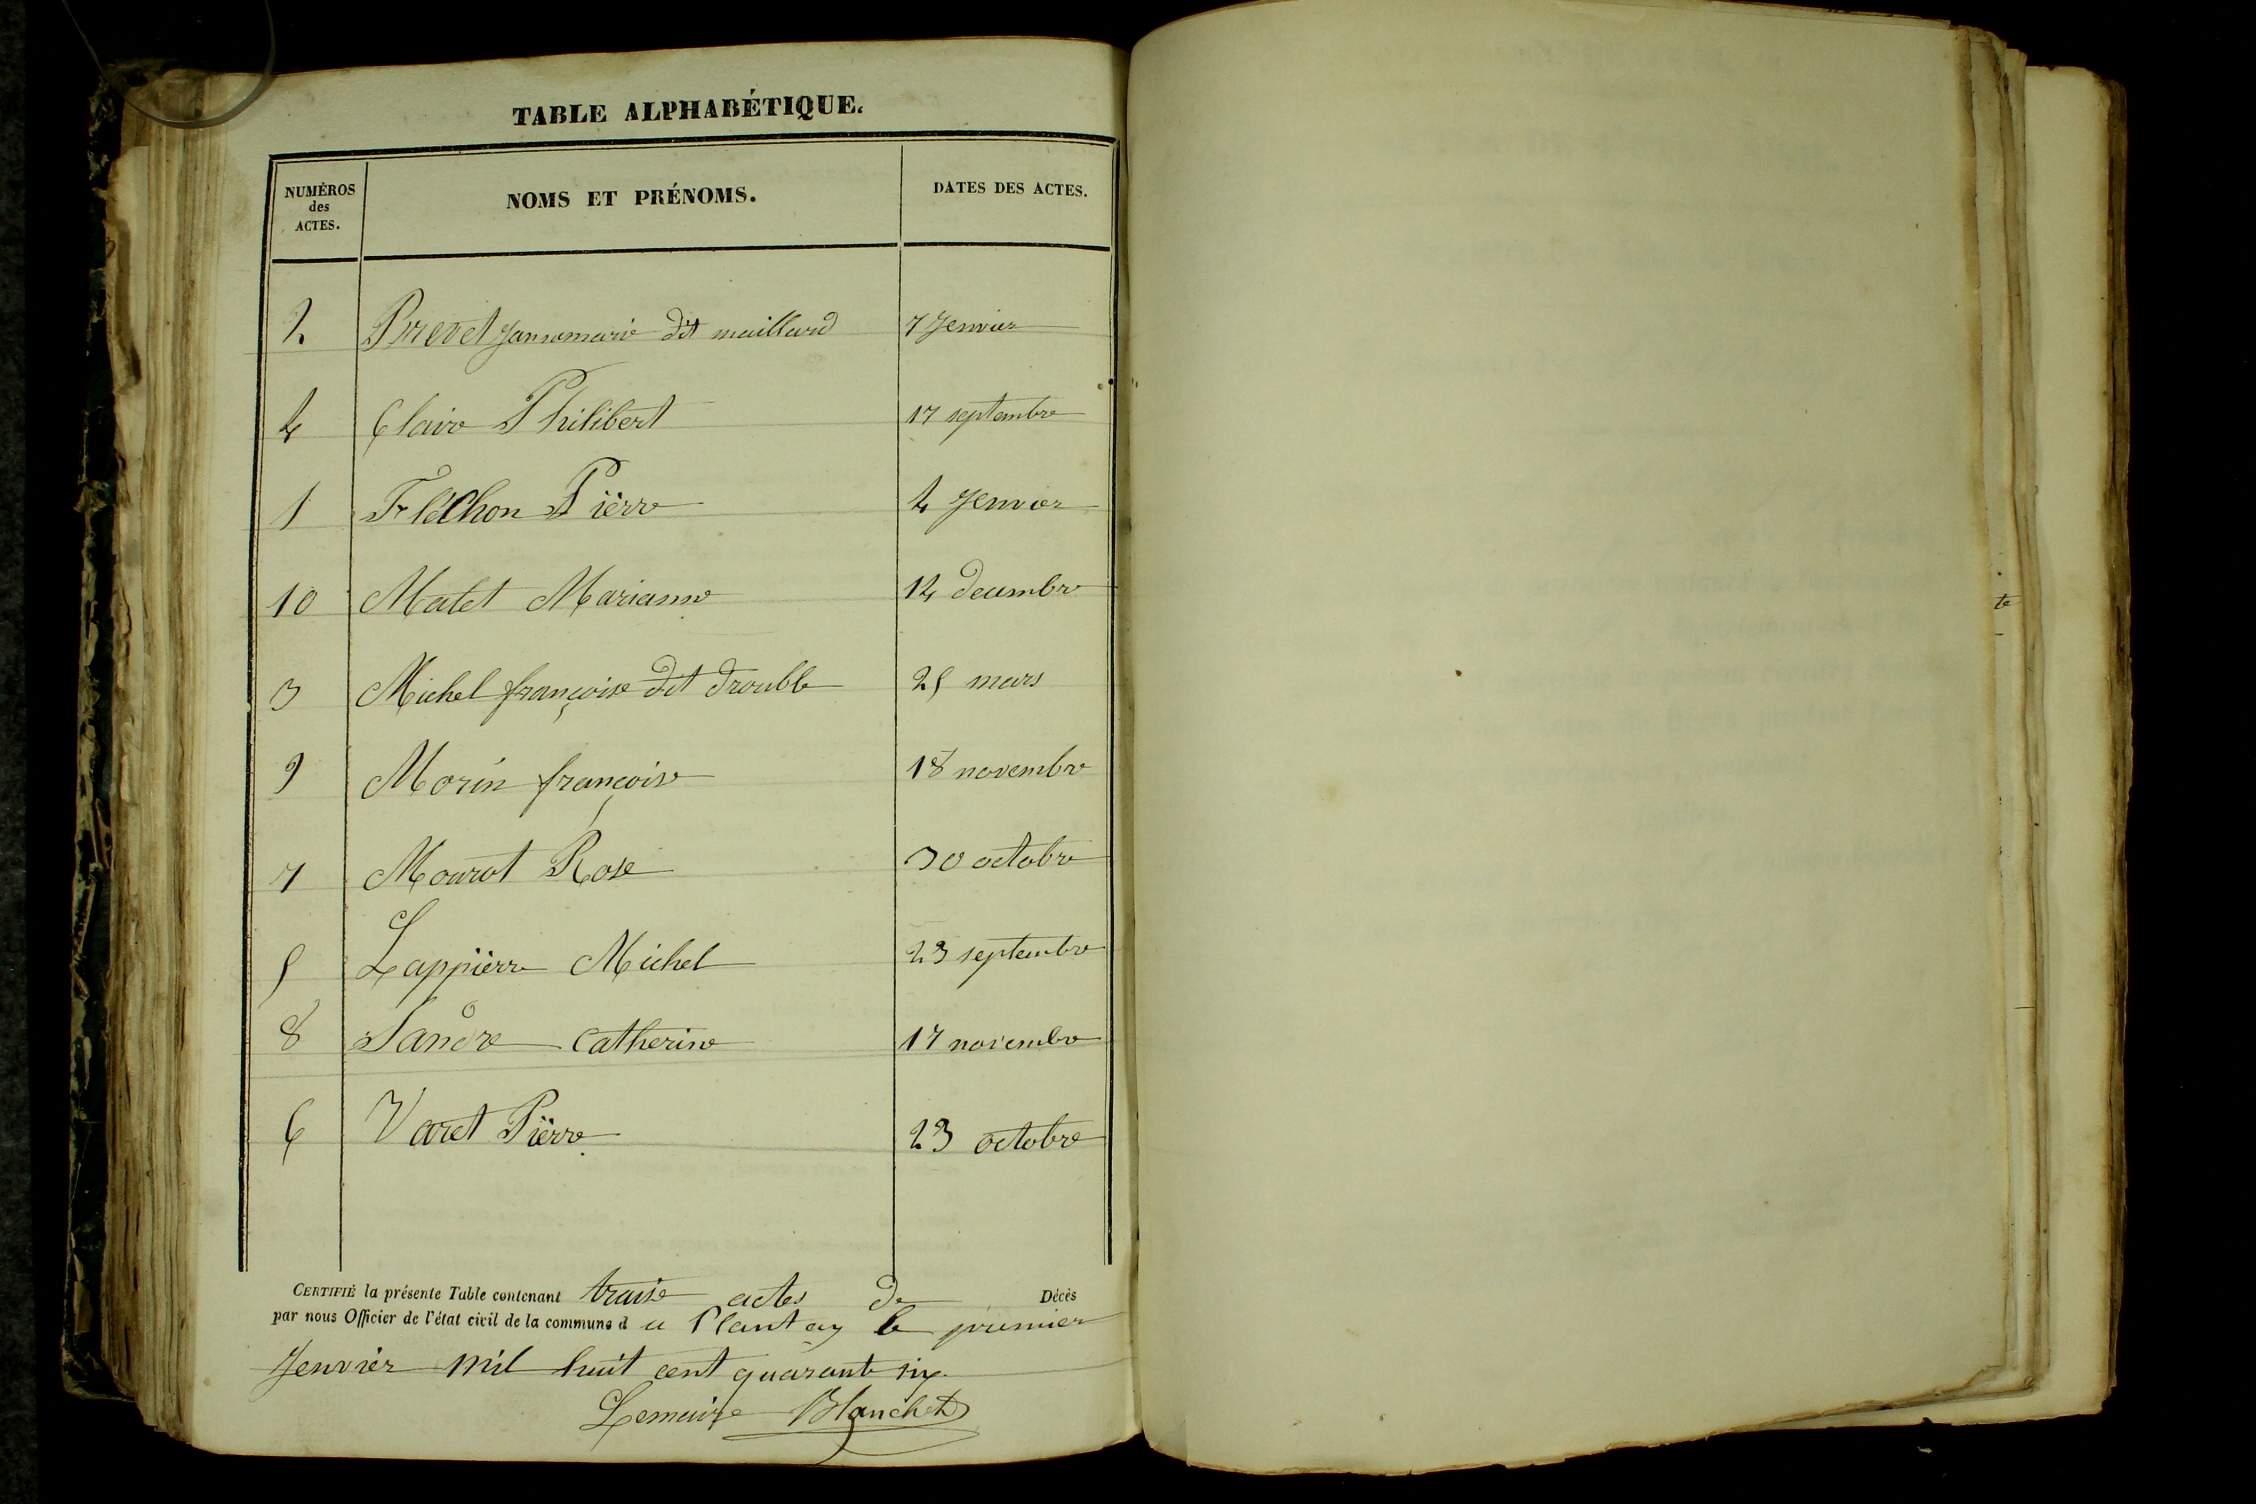 TABLE ALPHABÉTIQUE.
NUMÉROS des ACTES. NOMS ET PRÉNOMS. DATES DES ACTES.
2 Brevet Jannemarie dit maillard 7 Jenvier
4 Claire Philibert 17 septembre
1 Fléchon Pierre 4 Jenvier
10 Matet Marianne 14 decembre
3 Michel françoise dit Drouble 25 mars
9 Morin françoise 18 novembre
7 Mourot Rose 30 octobre
5 Lappierre Michel 23 septembre
8 Sandre Catherine 17 novembre
6 Varet Pierre 23 octobre
CERTIFIÉ la présente Table contenant traise actes De Décès
par nous Officier de l'état civil de la commune d u Plantay le premier
Jenvier mil huit cent quarante six
Lemaire Blanchet
te